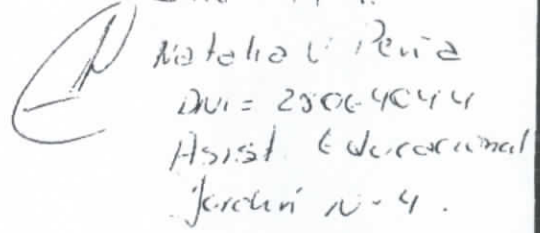 Natalia V Peña
DNI = 25064044
Asist Educacional
Jardin N-4.